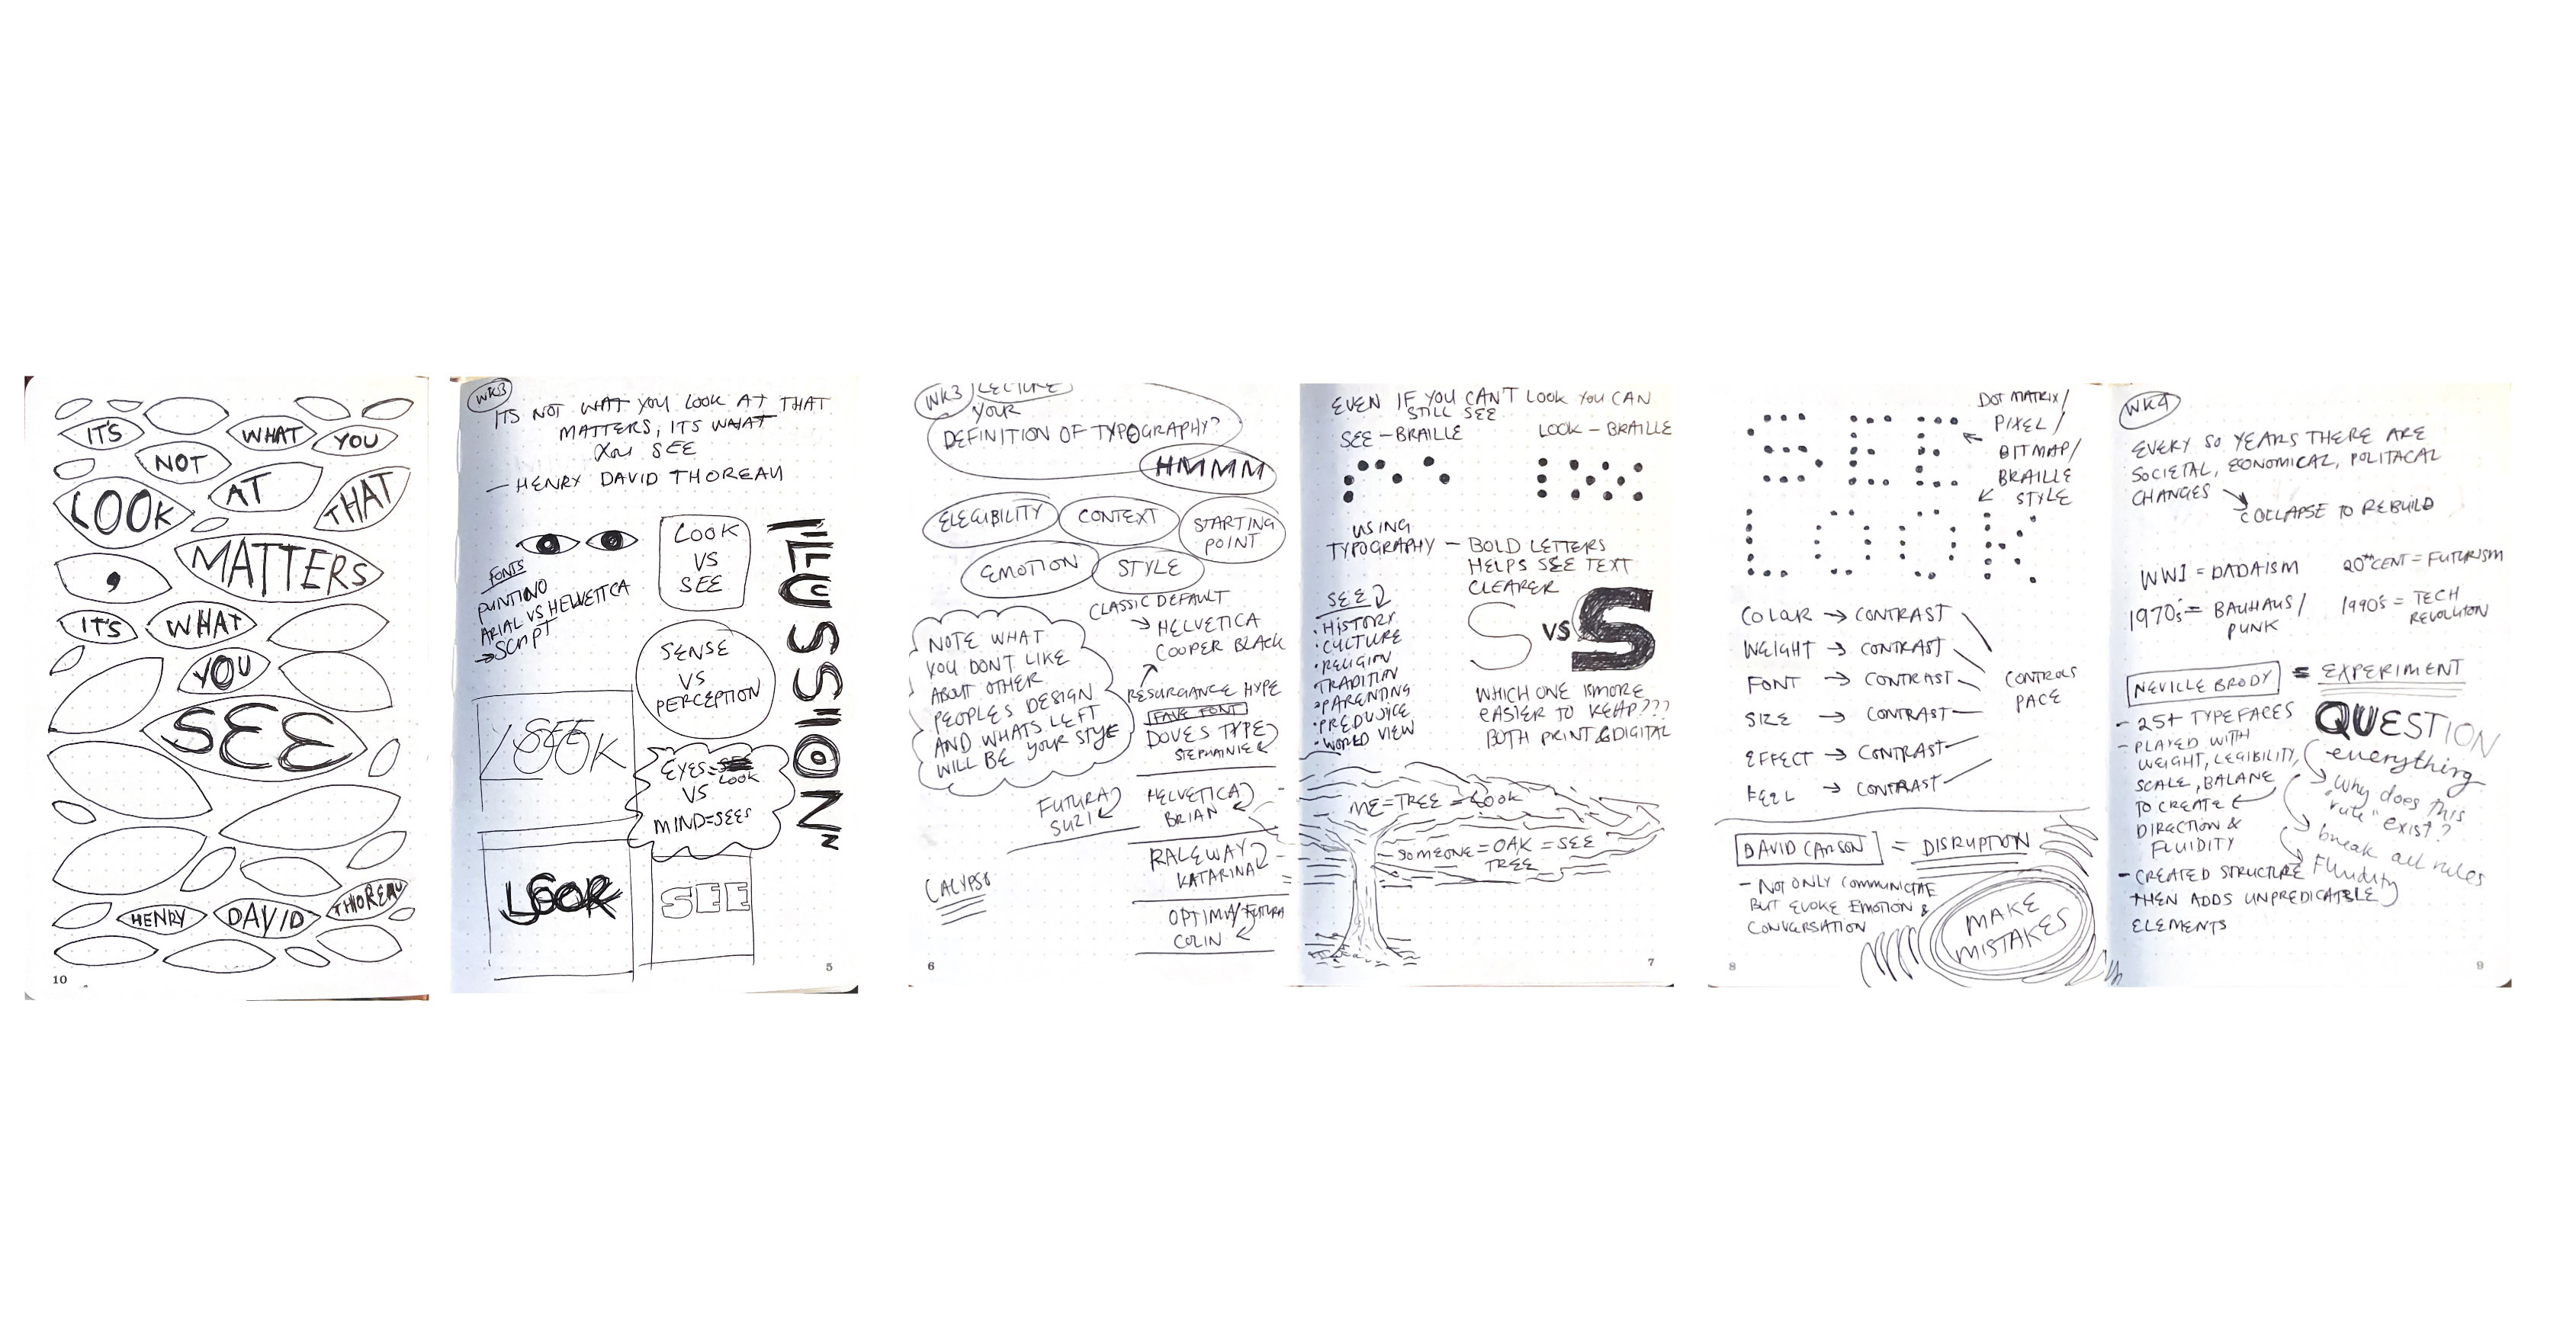 IT'S
WHAT YOU
NOT
LOOK AT THAT
MATTERS
,
IT'S WHAT
YOU
SEE
HENRY DAVID THOREAU
10
WK3
ITS NOT WHAT YOU LOOK AT THAT
MATTERS, ITS WHAT
YOU SEE
— HENRY DAVID THOREAU
LOOK
VS
SEE
ILLUSSION
FONTS
PUNTINO
ARIAL VS HELVETICA
→ SCRIPT
SENSE
VS
PERCEPTION
SEE
LOOK
EYES=
LOOK
VS
MIND=SEES
LOOK
SEE
5
WK3 LECTURE
YOUR
DEFINITION OF TYPOGRAPHY?
HMMM
ELEGIBILITY CONTEXT STARTING
POINT
EMOTION STYLE
NOTE WHAT
YOU DONT LIKE
ABOUT OTHER
PEOPLES DESIGN
AND WHATS LEFT
WILL BE YOUR STYE
CLASSIC DEFAULT
→ HELVETICA
COOPER BLACK
RESURGANCE HYPE
FAVE FONT
DOVES TYPE
STEPHANIE
FUTURA
SUZI
HELVETICA
BRIAN
RALEWAY
KATARINA
CALYPSO
OPTIMA/FUTURA
COLIN
6
EVEN IF YOU CAN'T LOOK YOU CAN
STILL SEE
SEE – BRAILLE
LOOK – BRAILLE
USING
TYPOGRAPHY – BOLD LETTERS
HELPS SEE TEXT
CLEARER
SEE
• HISTORY
• CULTURE
• RELIGION
TRADITION
• PARENTING
• PREDUJICE
• WORLD VIEW
S VS S
WHICH ONE IS MORE
EASIER TO REAP???
BOTH PRINT & DIGITAL
ME = TREE = LOOK
SOMEONE = OAK = SEE
TREE
7
SEE
LOOK
DOT MATRIX/
PIXEL/
BITMAP/
BRAILLE
STYLE
COLOUR → CONTRAST
WEIGHT → CONTRAST
FONT → CONTRAST
SIZE → CONTRAST
EFFECT → CONTRAST
FEEL → CONTRAST
CONTROLS
PACE
DAVID CARSON = DISRUPTION
– NOT ONLY COMMUNICTAE
BUT EVOKE EMOTION &
CONVERSATION
MAKE
MISTAKES
8
WK4
EVERY 50 YEARS THERE ARE
SOCIETAL, ECONOMICAL, POLITACAL
CHANGES
COLLAPSE TO REBUILD
WWI = DADAISM
20TH CENT = FUTURISM
1970's = BAUHAUS/
PUNK
1990's = TECH
REVOLUTION
NEVILLE BRODY = EXPERIMENT
– 25+ TYPEFACES
– PLAYED WITH
WEIGHT, LEGIBILITY,
SCALE, BALANE
TO CREATE
DIRECTION &
FLUIDITY
– CREATED STRUCTURE
THEN ADDS UNPREDICATBLE
ELEMENTS
QUESTION
everything
why does this
"rule" exist?
break all rules
Fluidity
9